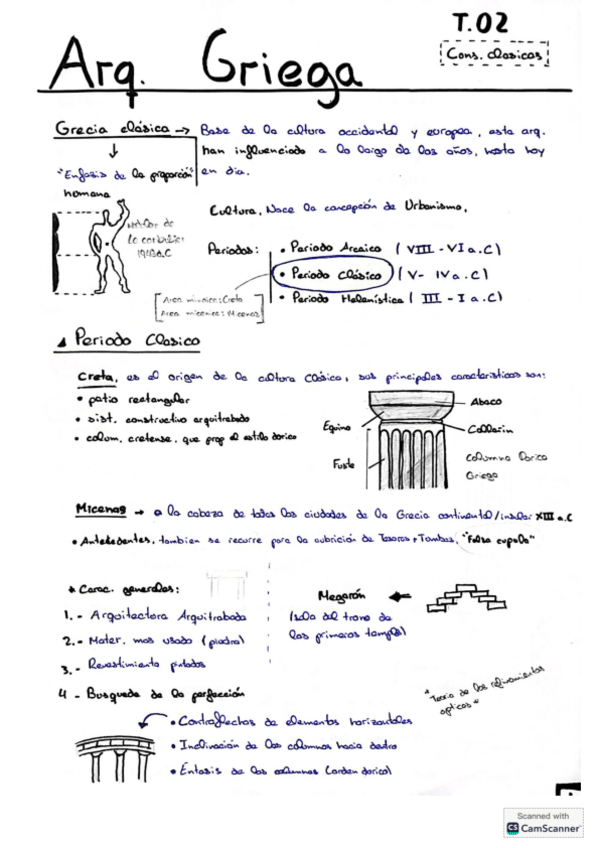 T.02
Cons. clasicas
Arq. Griega
Grecia clásica → Base de la cultura occidental y europea, esta arq.
han influenciado a lo largo de los años, hasta hoy
en dia.
"Enfasis de la proporción"
humana
Cultura, Nace la concepción de Urbanismo,
Periodos:
• Periodo Arcaico ( VIII - VI a.C)
• Periodo Clásico ( V - IV a.C)
• Periodo Helenística ( III - I a.C)
Area minoica: Creta
Area micenea: Micenas
Periodo Clasico
Creta, es el origen de la cultura Clásico, sus principales caracteristicas son:
• patio rectangular
• sist. constructivo arquitrabado
• colum. cretense, que prop el estilo dorico
Abaco
Equino
Collarin
Fuste
Columna Dorica
Griega
Micenas → a la cabeza de todas las ciudades de la Grecia continental/insular XIII a.C
• Antekedentes, tambien se recurre para la cubrición de Tesoros + Tumbas, "Falsa cupula"
* Carac. generales:
1. - Arquitectura Arquitrabada
2. - Mater. mas usado (piedra)
3. - Revestimiento pintados
4 - Busqueda de la perfección
Megarón
(sala del trono de
los primeros templos)
* Teoria de los refinamientos
opticos *
• Contraflechas de elementos horizontales
• Inclinación de las columnas hacia dentro
• Entasis de las columnas (orden dorico)
Scanned with
CS CamScanner